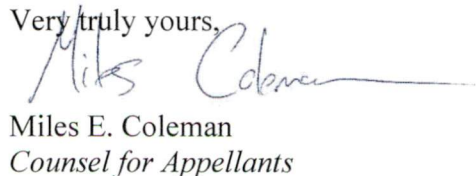 Very truly yours,
Miles Coleman
Miles E. Coleman
Counsel for Appellants